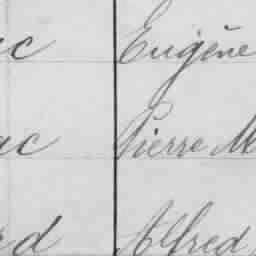 ac Eugène
ac Pierre M
rd Alfred